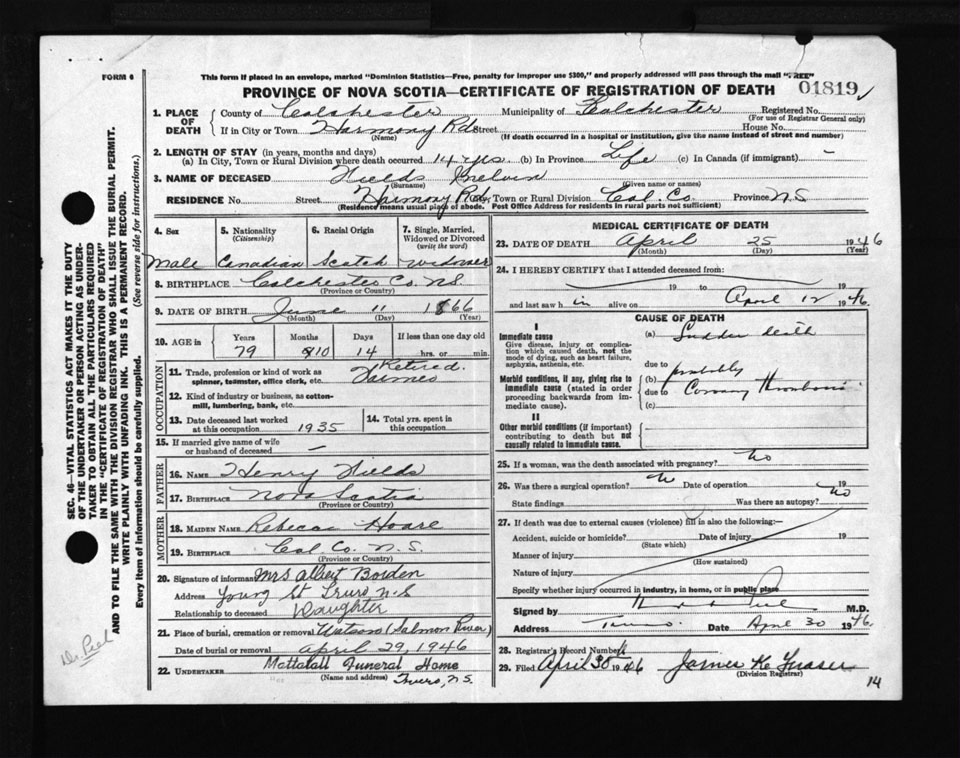 FORM 6
This form if placed in an envelope, marked "Dominion Statistics—Free, penalty for improper use $300," and properly addressed will pass through the mail "FREE"
PROVINCE OF NOVA SCOTIA—CERTIFICATE OF REGISTRATION OF DEATH
01819
1. PLACE OF DEATH County of Colchester Municipality of Colchester Registered No.
(For use of Registrar General only)
If in City or Town Harmony Rd Street House No.
(Name) (If death occurred in a hospital or institution, give the name instead of street and number)
2. LENGTH OF STAY (in years, months and days)
(a) In City, Town or Rural Division where death occurred 14 yrs. (b) In Province Life (c) In Canada (if immigrant) -
3. NAME OF DECEASED Fields Melvin
(Surname) (Given name or names)
RESIDENCE No. Street Harmony Rd, Town or Rural Division Col. Co. Province N.S
(Residence means usual place of abode. Post Office Address for residents in rural parts not sufficient)
4. Sex 5. Nationality (Citizenship) 6. Racial Origin 7. Single, Married, Widowed or Divorced (write the word)
Male Canadian Scotch widower
8. BIRTHPLACE Colchester Co. N.S.
(Province or Country)
9. DATE OF BIRTH June 11 1866
(Month) (Day) (Year)
10. AGE in Years Months Days If less than one day old
79 10 14 hrs. or min.
OCCUPATION
11. Trade, profession or kind of work as spinner, teamster, office clerk, etc. Retired Farmer
12. Kind of industry or business, as cotton-mill, lumbering, bank, etc.
13. Date deceased last worked at this occupation 1935
14. Total yrs. spent in this occupation
15. If married give name of wife or husband of deceased
FATHER
16. NAME Henry Fields
17. BIRTHPLACE Nova Scotia
(Province or Country)
MOTHER
18. MAIDEN NAME Rebecca Hoare
19. BIRTHPLACE Col. Co. N.S.
(Province or Country)
20. Signature of informant Mrs Albert Borden
Address Young St Truro N.S
Relationship to deceased Daughter
21. Place of burial, cremation or removal Watson (Salmon River)
Date of burial or removal April 29, 1946
22. UNDERTAKER Mattatall Funeral Home
(Name and address) Truro, N.S.
MEDICAL CERTIFICATE OF DEATH
23. DATE OF DEATH April 25 1946
(Month) (Day) (Year)
24. I HEREBY CERTIFY that I attended deceased from:
19 to 19
and last saw h im alive on April 12 1946.
CAUSE OF DEATH
I
Immediate cause
Give disease, injury or complication which caused death, not the mode of dying, such as heart failure, asphyxia, asthenia, etc.
(a) Sudden death
due to
Morbid conditions, if any, giving rise to immediate cause (stated in order proceeding backwards from immediate cause).
(b) probably
due to Coronary Thrombosis
(c)
II
Other morbid conditions (if important) contributing to death but not causally related to immediate cause.
25. If a woman, was the death associated with pregnancy? No
26. Was there a surgical operation? No Date of operation 19
State findings Was there an autopsy? No
27. If death was due to external causes (violence) fill in also the following:—
Accident, suicide or homicide? Date of injury 19
(State which)
Manner of injury
(How sustained)
Nature of injury
Specify whether injury occurred in industry, in home, or in public place
Signed by M.D.
Address Truro. Date April 30 1946.
28. Registrar's Record Number
29. Filed April 30 1946 James K Fraser
(Division Registrar)
14
SEC. 46—VITAL STATISTICS ACT MAKES IT THE DUTY
OF THE UNDERTAKER OR PERSON ACTING AS UNDERTAKER TO OBTAIN ALL THE PARTICULARS REQUIRED
IN THE "CERTIFICATE OF REGISTRATION OF DEATH"
AND TO FILE THE SAME WITH THE DIVISION REGISTRAR WHO SHALL ISSUE THE BURIAL PERMIT.
WRITE PLAINLY WITH UNFADING INK. THIS IS A PERMANENT RECORD.
Every item of information should be carefully supplied. (See reverse side for instructions.)
Dr. Peel